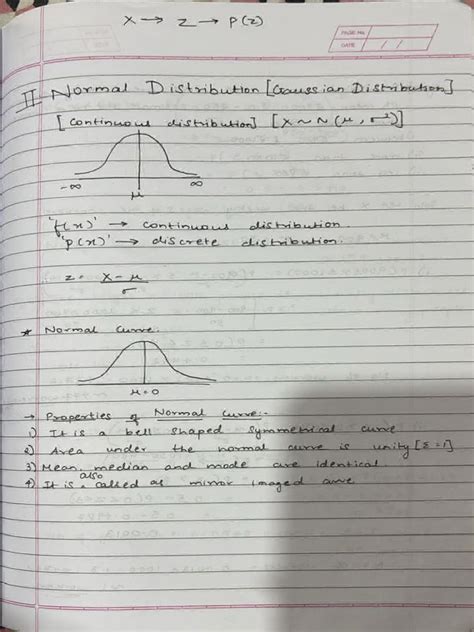 X → Z → P(Z)
PAGE No.
DATE / /
II Normal Distribution [Gaussian Distribution]
[continuous distribution] [X ~ N(μ, σ²)]
-∞ μ ∞
'f(x)' → continuous distribution.
'p(x)' → discrete distribution.
Z = X - μ / σ
* Normal Curve:
μ = 0
→ Properties of Normal Curve:-
1) It is a bell shaped symmetrical curve
2) Area under the normal curve is unity [Σ = 1]
3) Mean, median and mode are identical.
4) It is also called as mirror imaged curve